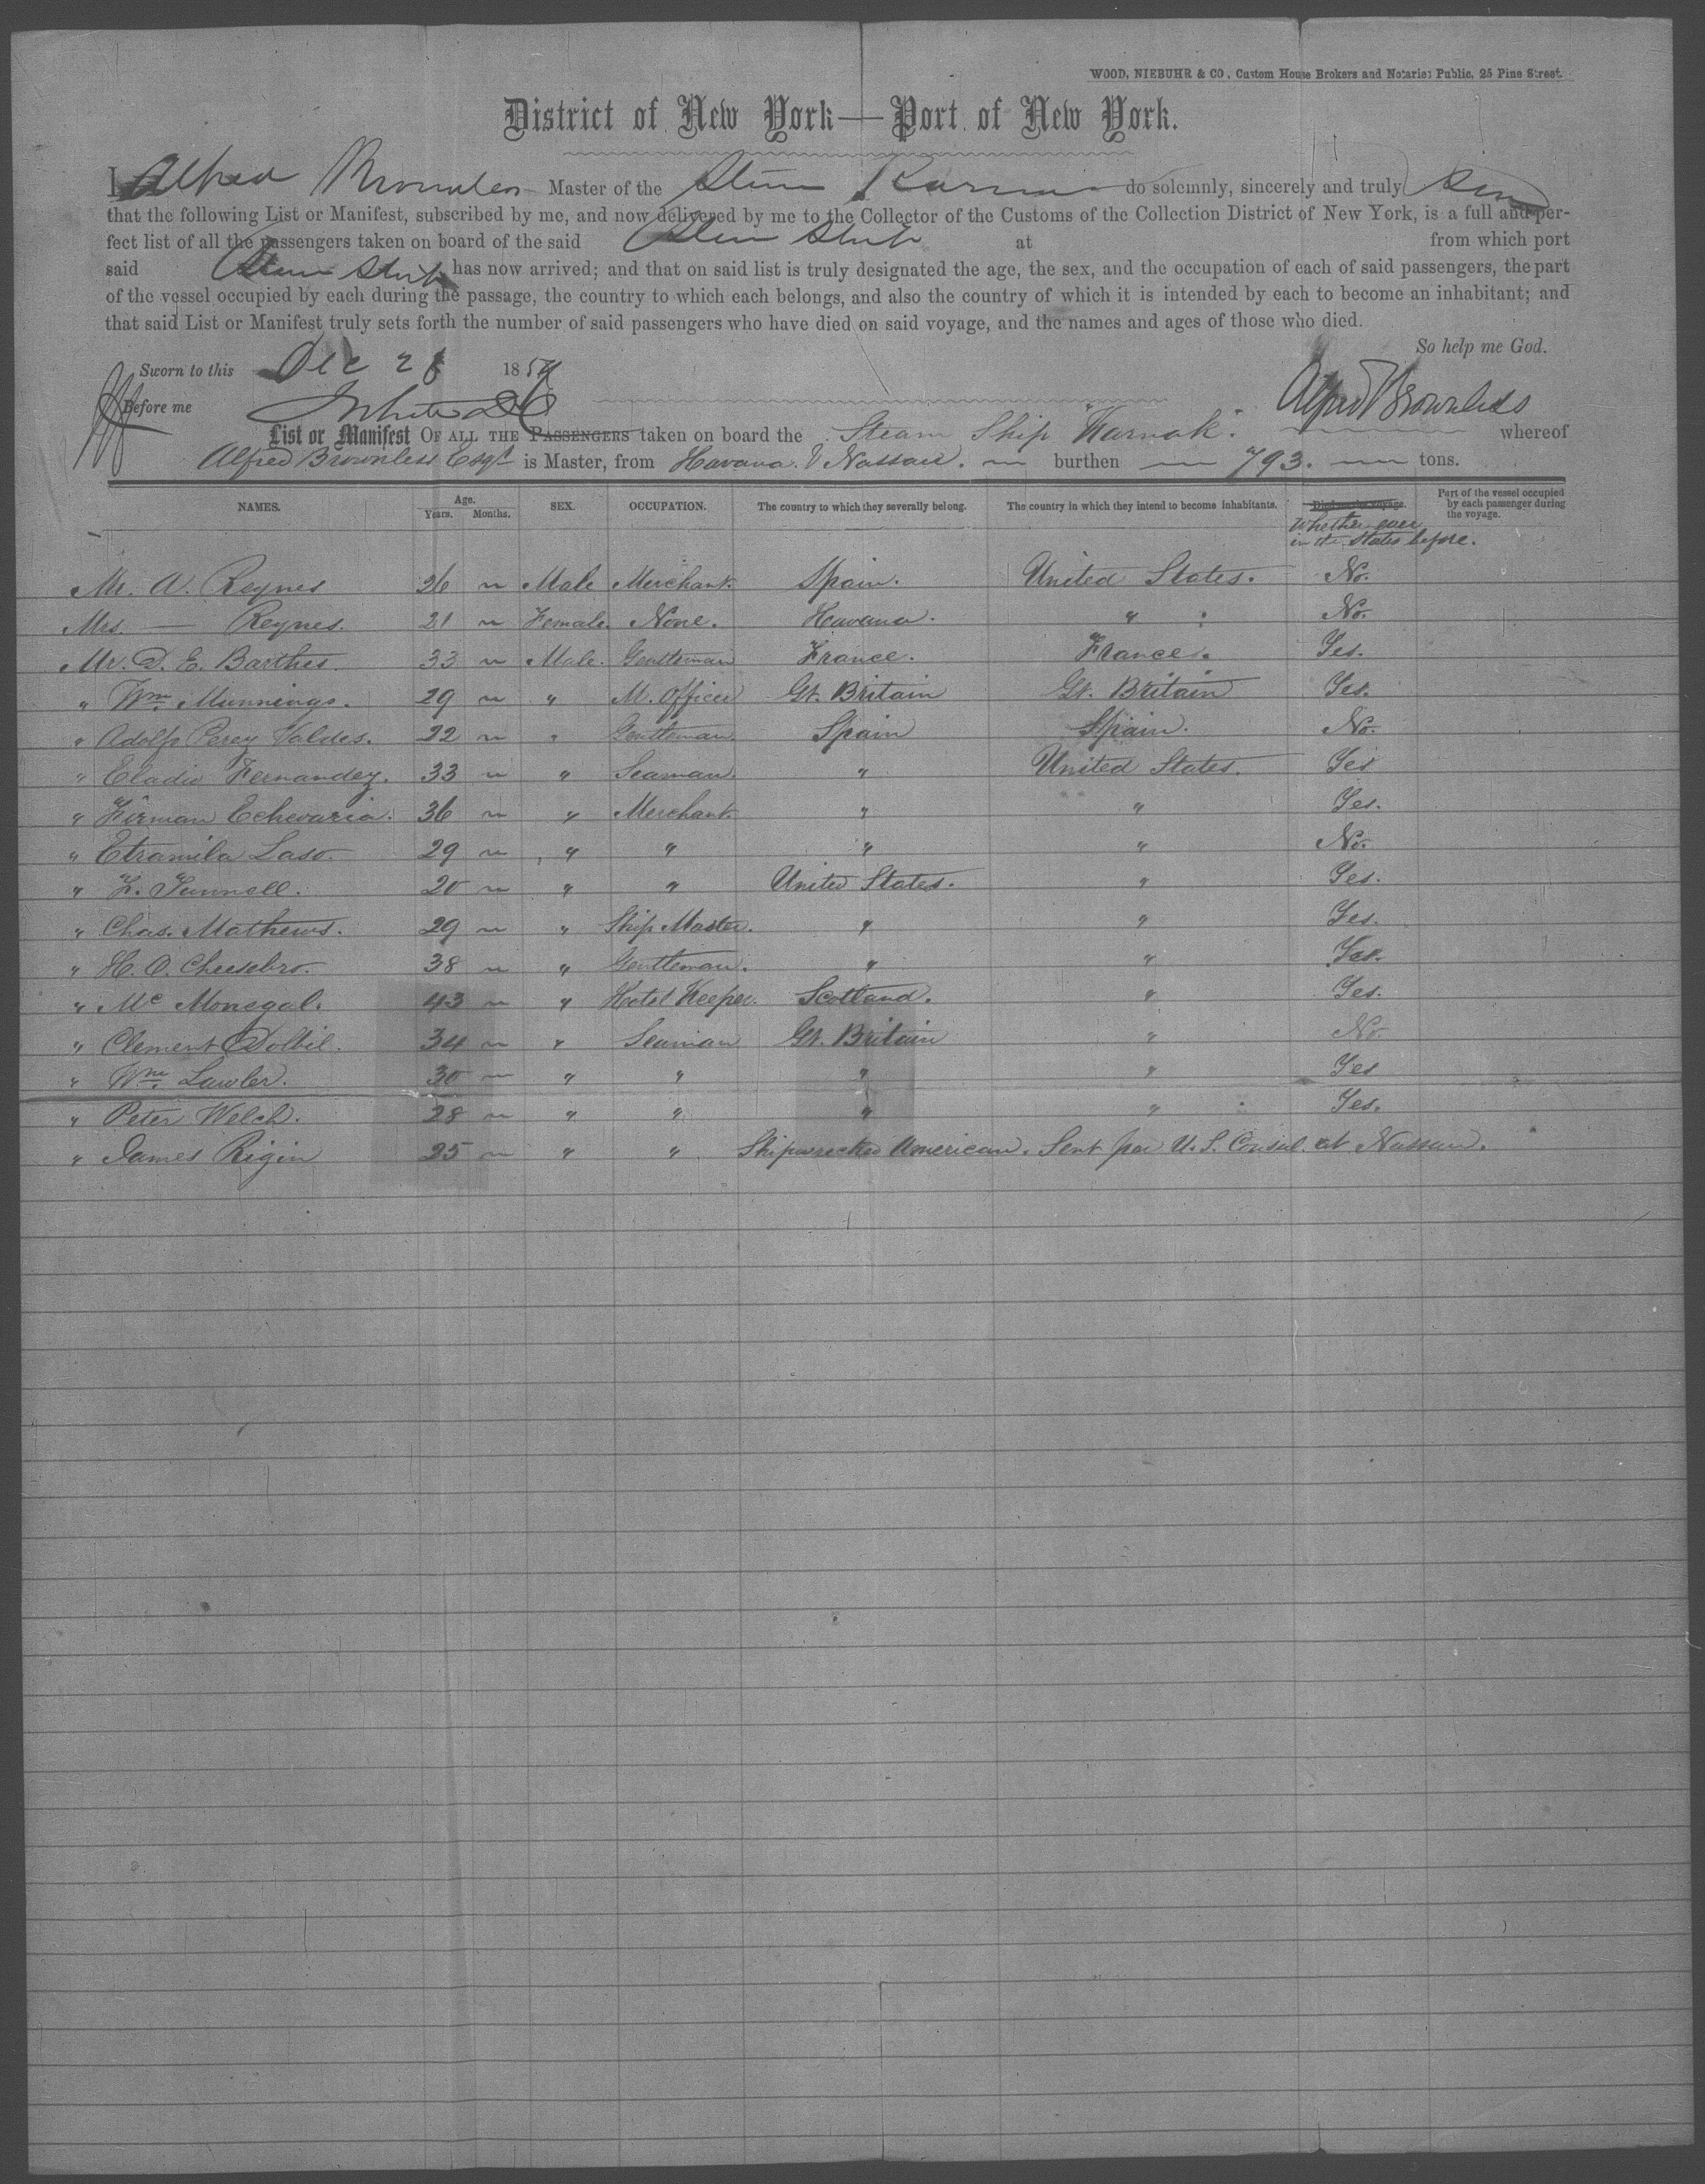 WOOD, NIEBUHR & CO, Custom House Brokers and Notaries Public, 25 Pine Street.
District of New York—Port of New York.
I Alfred Brownless Master of the Steam Karnak do solemnly, sincerely and truly
that the following List or Manifest, subscribed by me, and now delivered by me to the Collector of the Customs of the Collection District of New York, is a full and per-
fect list of all the passengers taken on board of the said Steam Ship at from which port
said Steam Ship has now arrived; and that on said list is truly designated the age, the sex, and the occupation of each of said passengers, the part
of the vessel occupied by each during the passage, the country to which each belongs, and also the country of which it is intended by each to become an inhabitant; and
that said List or Manifest truly sets forth the number of said passengers who have died on said voyage, and the names and ages of those who died.
So help me God.
Sworn to this Dec 28 1859
Before me Alfred Brownless
List or Manifest OF ALL THE PASSENGERS taken on board the Steam Ship "Karnak". whereof
Alfred Brownless Esqr is Master, from Havana & Nassau. burthen 793. tons.
NAMES. Age. Years. Months. SEX. OCCUPATION. The country to which they severally belong. The country in which they intend to become inhabitants. Died on the voyage. Part of the vessel occupied by each passenger during the voyage.
Whether ever in the States before.
Mr. A. Reynes 26 ~ Male Merchant. Spain. United States. No.
Mrs. — Reynes. 21 ~ Female. None. Havana. " No.
Mr. D. E. Barthes. 33 ~ Male. Gentleman France. France. Yes.
" Wm. Munnings. 29 ~ " M. Officer Gt. Britain Gt. Britain Yes.
" Adolfo Perez Valdes. 22 ~ " Gentleman. Spain Spain. No.
" Eladio Fernandez. 33 ~ " Seaman. " United States. Yes
" Firman Echevaria. 36 ~ " Merchant. " " Yes.
" Etramila Laso. 29 ~ " " " " No.
" F. Tunnell. 20 ~ " " United States. " Yes.
" Chas. Mathews. 29 ~ " Ship Master. " " Yes.
" H. O. Cheesebro. 38 ~ " Gentleman. " " Yes.
" Mc Monegal. 43 ~ " Hotel Keeper. Scotland. " Yes.
" Clement Dolbil. 34 ~ " Seaman Gt. Britain " No
" Wm. Lawler. 30 ~ " " " " Yes
" Peter Welch. 28 ~ " " " " Yes.
" James Rigin 25 ~ " " Shipwrecked American. Sent per U.S. Consul. at Nassau.